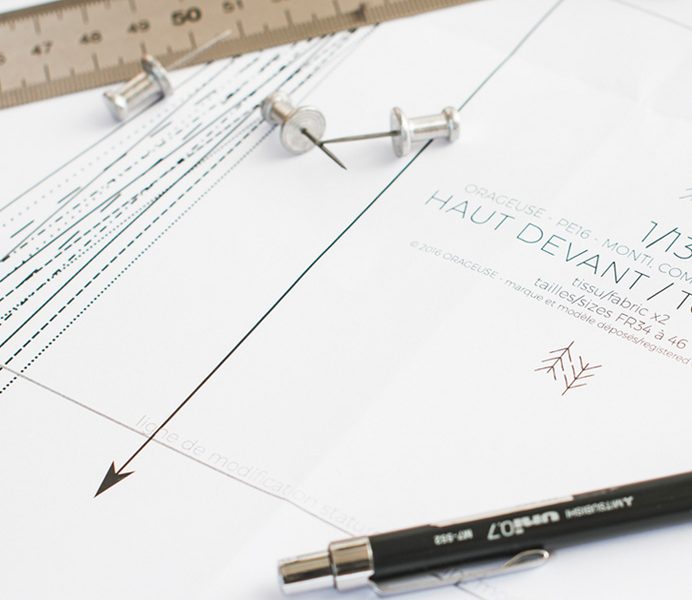 47 48 49 50 51
ORAGEUSE - PE16 - MONTI. COM
1/13
HAUT DEVANT / TO
© 2016 ORAGEUSE - marque et modèle déposés/registered
tissu/fabric x2
tailles/sizes FR34 à 46
ligne de modification statu
MITSUBISHI uni 0.7 M7-552